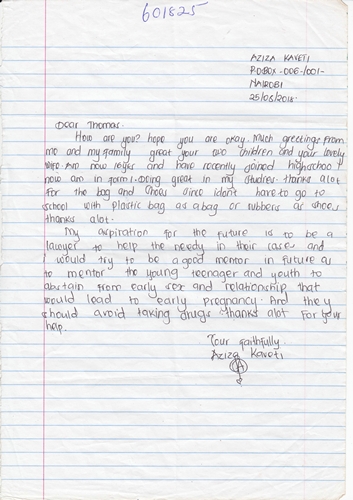 601825
AZIZA KAVETI
P.O BOX - 006 -/001-
NAIROBI
25/06/2018.
Dear Thomas.
How are you? hope you are okay. Much greetings from
me and my family great your two children and your lovely
wife. Am now 16yrs and have recently joined highschool I
now am in form 1. Doing great in my studies. thanks alot
for the bag and shoes since idon't have to go to
school with plastic bag as a bag or rubbers as shoes
thanks alot.
My aspiration for the future is to be a
lawyer to help the needy in their case and
I would try to be a good mentor in future as
to mentor the young teenager and youth to
abstain from early sex and relationship that
would lead to early pregnancy. And they
should avoid taking drugs thanks alot for your
help.
Your faithfully.
Aziza Kaveti